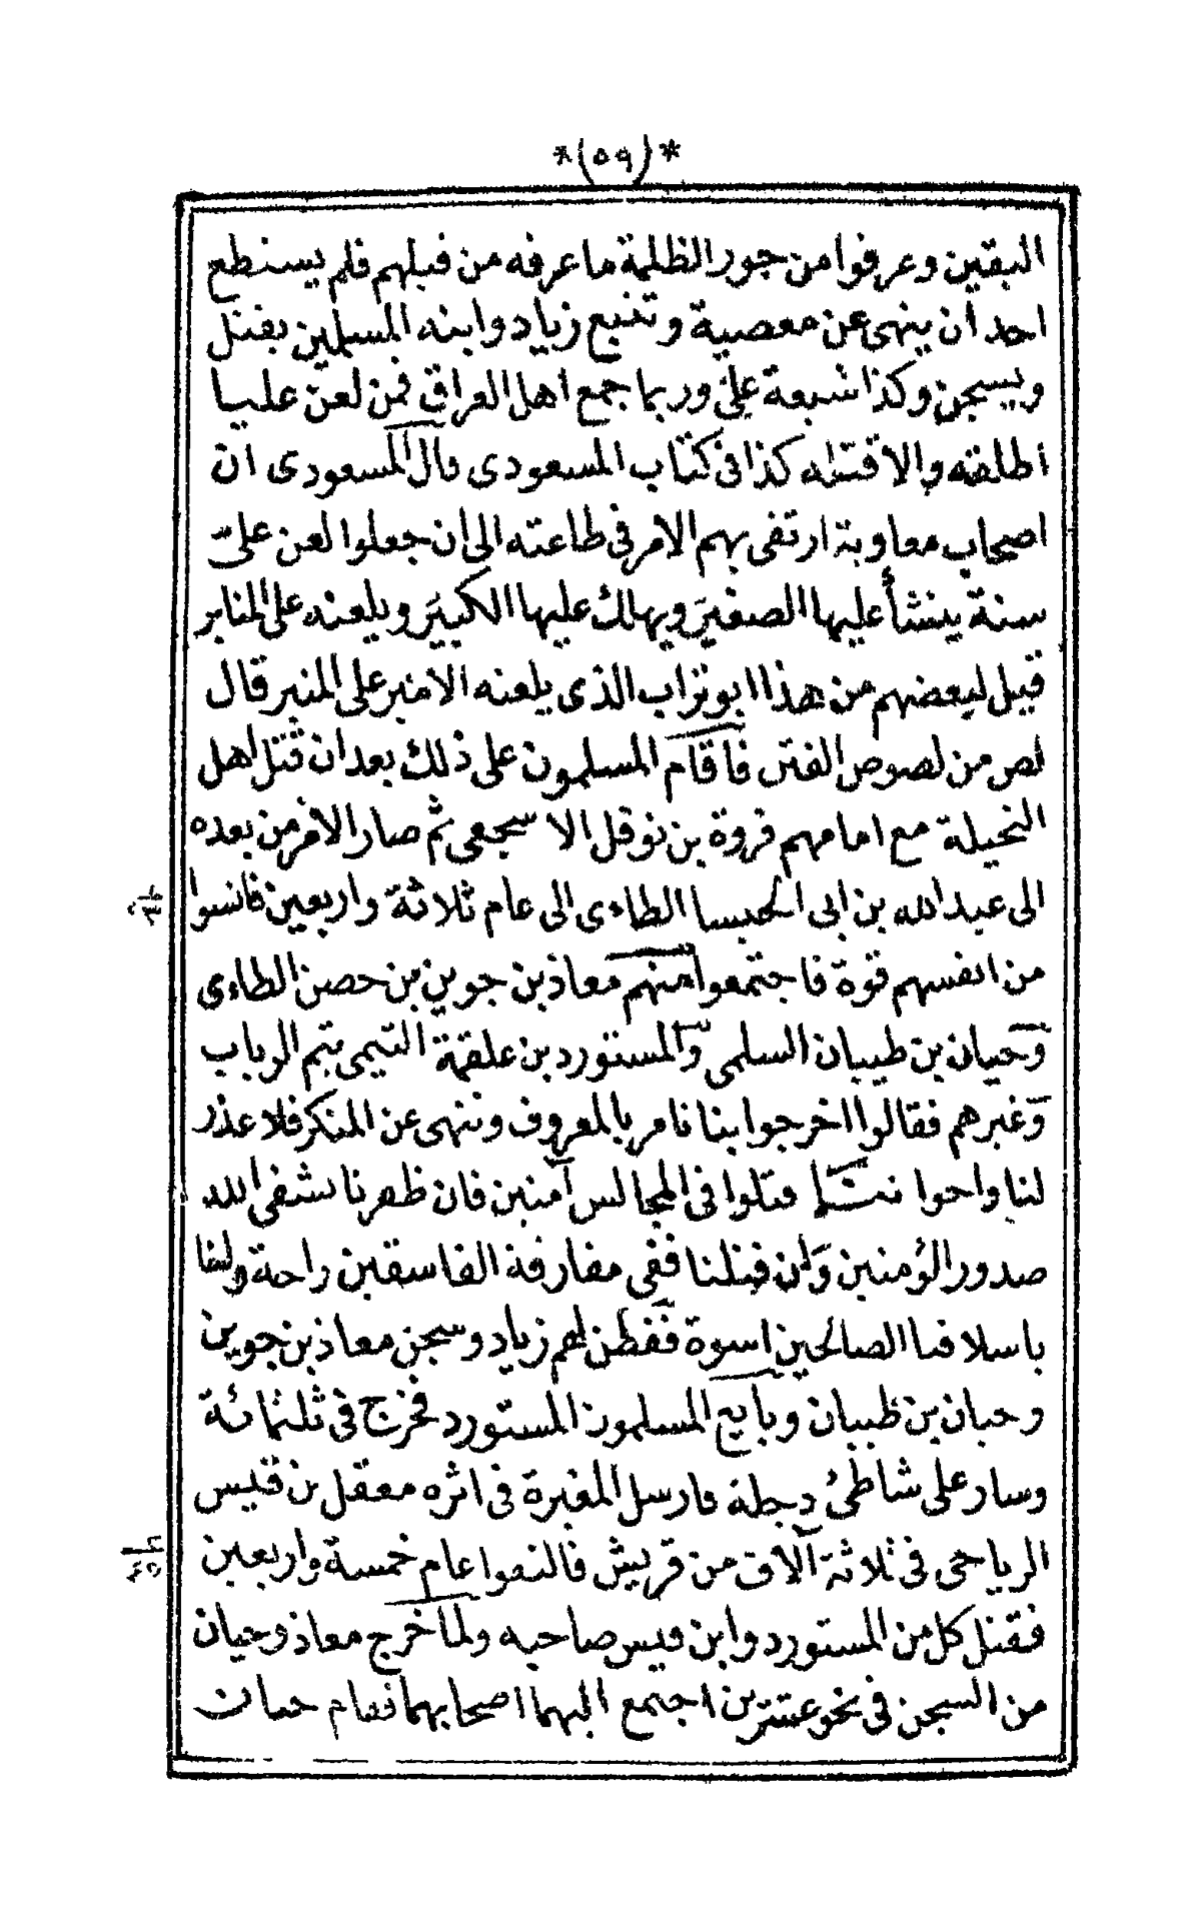 *(٥٩)*
اليقين وعرفوا من جور الظلمة ما عرفه من قبلهم فلم يستطع
احد ان ينهى عن معصية وتتبع زياد وابنه المسلمين بقتل
ويسجن وكذا شيعة علىّ وربما جمع اهل العراق فمن لعن عليا
اطلقه والا قتله كذا فى كتاب المسعودى قال المسعودى ان
اصحاب معاوية ارتقى بهم الامر فى طاعته الى ان جعلوا لعن علىّ
سنة ينشأ عليها الصغيرَ ويهلك عليها الكبيرَ ويلعنه على المنابر
قيل لبعضهم من هذا ابو تراب الذى يلعنه الامير على المنبر قال
لص من لصوص الفتن فاقام المسلمون على ذلك بعد ان قتل اهل
النخيلة مع امامهم فروة بن نوفل الاشجعى ثم صار الامر من بعده
الى عبد الله بن ابى الحبسا الطاءى الى عام ثلاثة واربعين فانسوا
من انفسهم قوة فاجتمعوا منهم معاذ بن جوين بن حصن الطاءى
وحيان بن ظبيان السلمى والمستورد بن علقمة التيمى تيم الرباب
وغيرهم فقالوا اخرجوا بنا نامر بالمعروف وننهى عن المنكر فلا عذر
لنا واخوا ننا قتلوا فى المجالس آمنين فان ظهرنا يشفى الله
صدور المؤمنين وان قتلنا ففى مفارقة الفاسقين راحة ولنا
باسلافنا الصالحين اسوة ففطن لهم زياد وسجن معاذ بن جوين
وحيان بن ظبيان وبايع المسلمون المستورد فخرج فى ثلثمائة
وسار على شاطئ دجلة فارسل المغيرة فى اثره معقل بن قيس
الرياحى فى ثلاثة آلاف من قريش فالتقوا عام خمسة واربعين
فقتل كل من المستورد وابن قيس صاحبه ولما خرج معاذ وحيان
من السجن فى نحو عشرين اجتمع اليهما اصحابهما فقام حيان